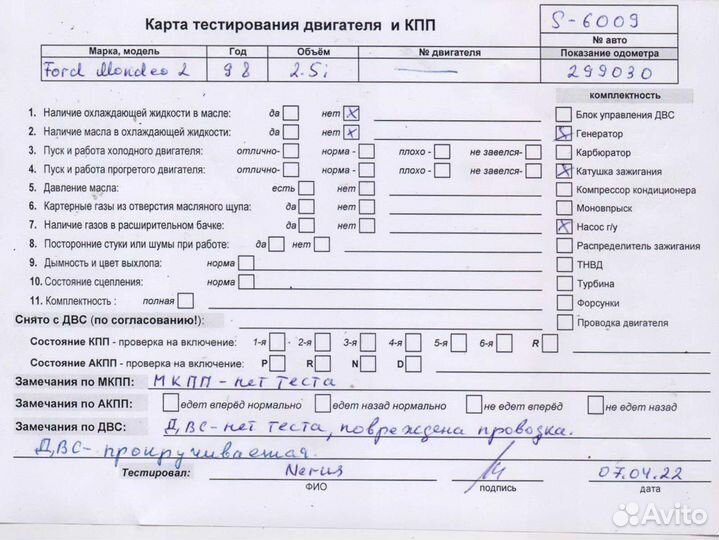 Карта тестирования двигателя и КПП
S-6009
№ авто
Марка, модель Год Объём № двигателя Показание одометра
Ford Mondeo 2 98 2.5i — 299030
комплектность
1. Наличие охлаждающей жидкости в масле: да нет X
2. Наличие масла в охлаждающей жидкости: да нет X
3. Пуск и работа холодного двигателя: отлично- норма - плохо - не завелся-
4. Пуск и работа прогретого двигателя: отлично- норма - плохо - не завелся-
5. Давление масла: есть нет
6. Картерные газы из отверстия масляного щупа: да нет
7. Наличие газов в расширительном бачке: да нет
8. Посторонние стуки или шумы при работе: да нет
9. Дымность и цвет выхлопа: норма
10. Состояние сцепления: норма
11. Комплектность : полная
Блок управления ДВС
X Генератор
Карбюратор
X Катушка зажигания
Компрессор кондиционера
Моновпрыск
X Насос г/у
Распределитель зажигания
ТНВД
Турбина
Форсунки
Проводка двигателя
Снято с ДВС (по согласованию!):
Состояние КПП - проверка на включение: 1-я 2-я 3-я 4-я 5-я 6-я R
Состояние АКПП - проверка на включение: P R N D
Замечания по МКПП: МКПП - нет теста
Замечания по АКПП: едет вперёд нормально едет назад нормально не едет вперёд не едет назад
Замечания по ДВС: ДВС - нет теста, повреждена проводка.
ДВС - прокручиваемая.
Тестировал: Nerus 07.04.22
ФИО подпись дата
Avito